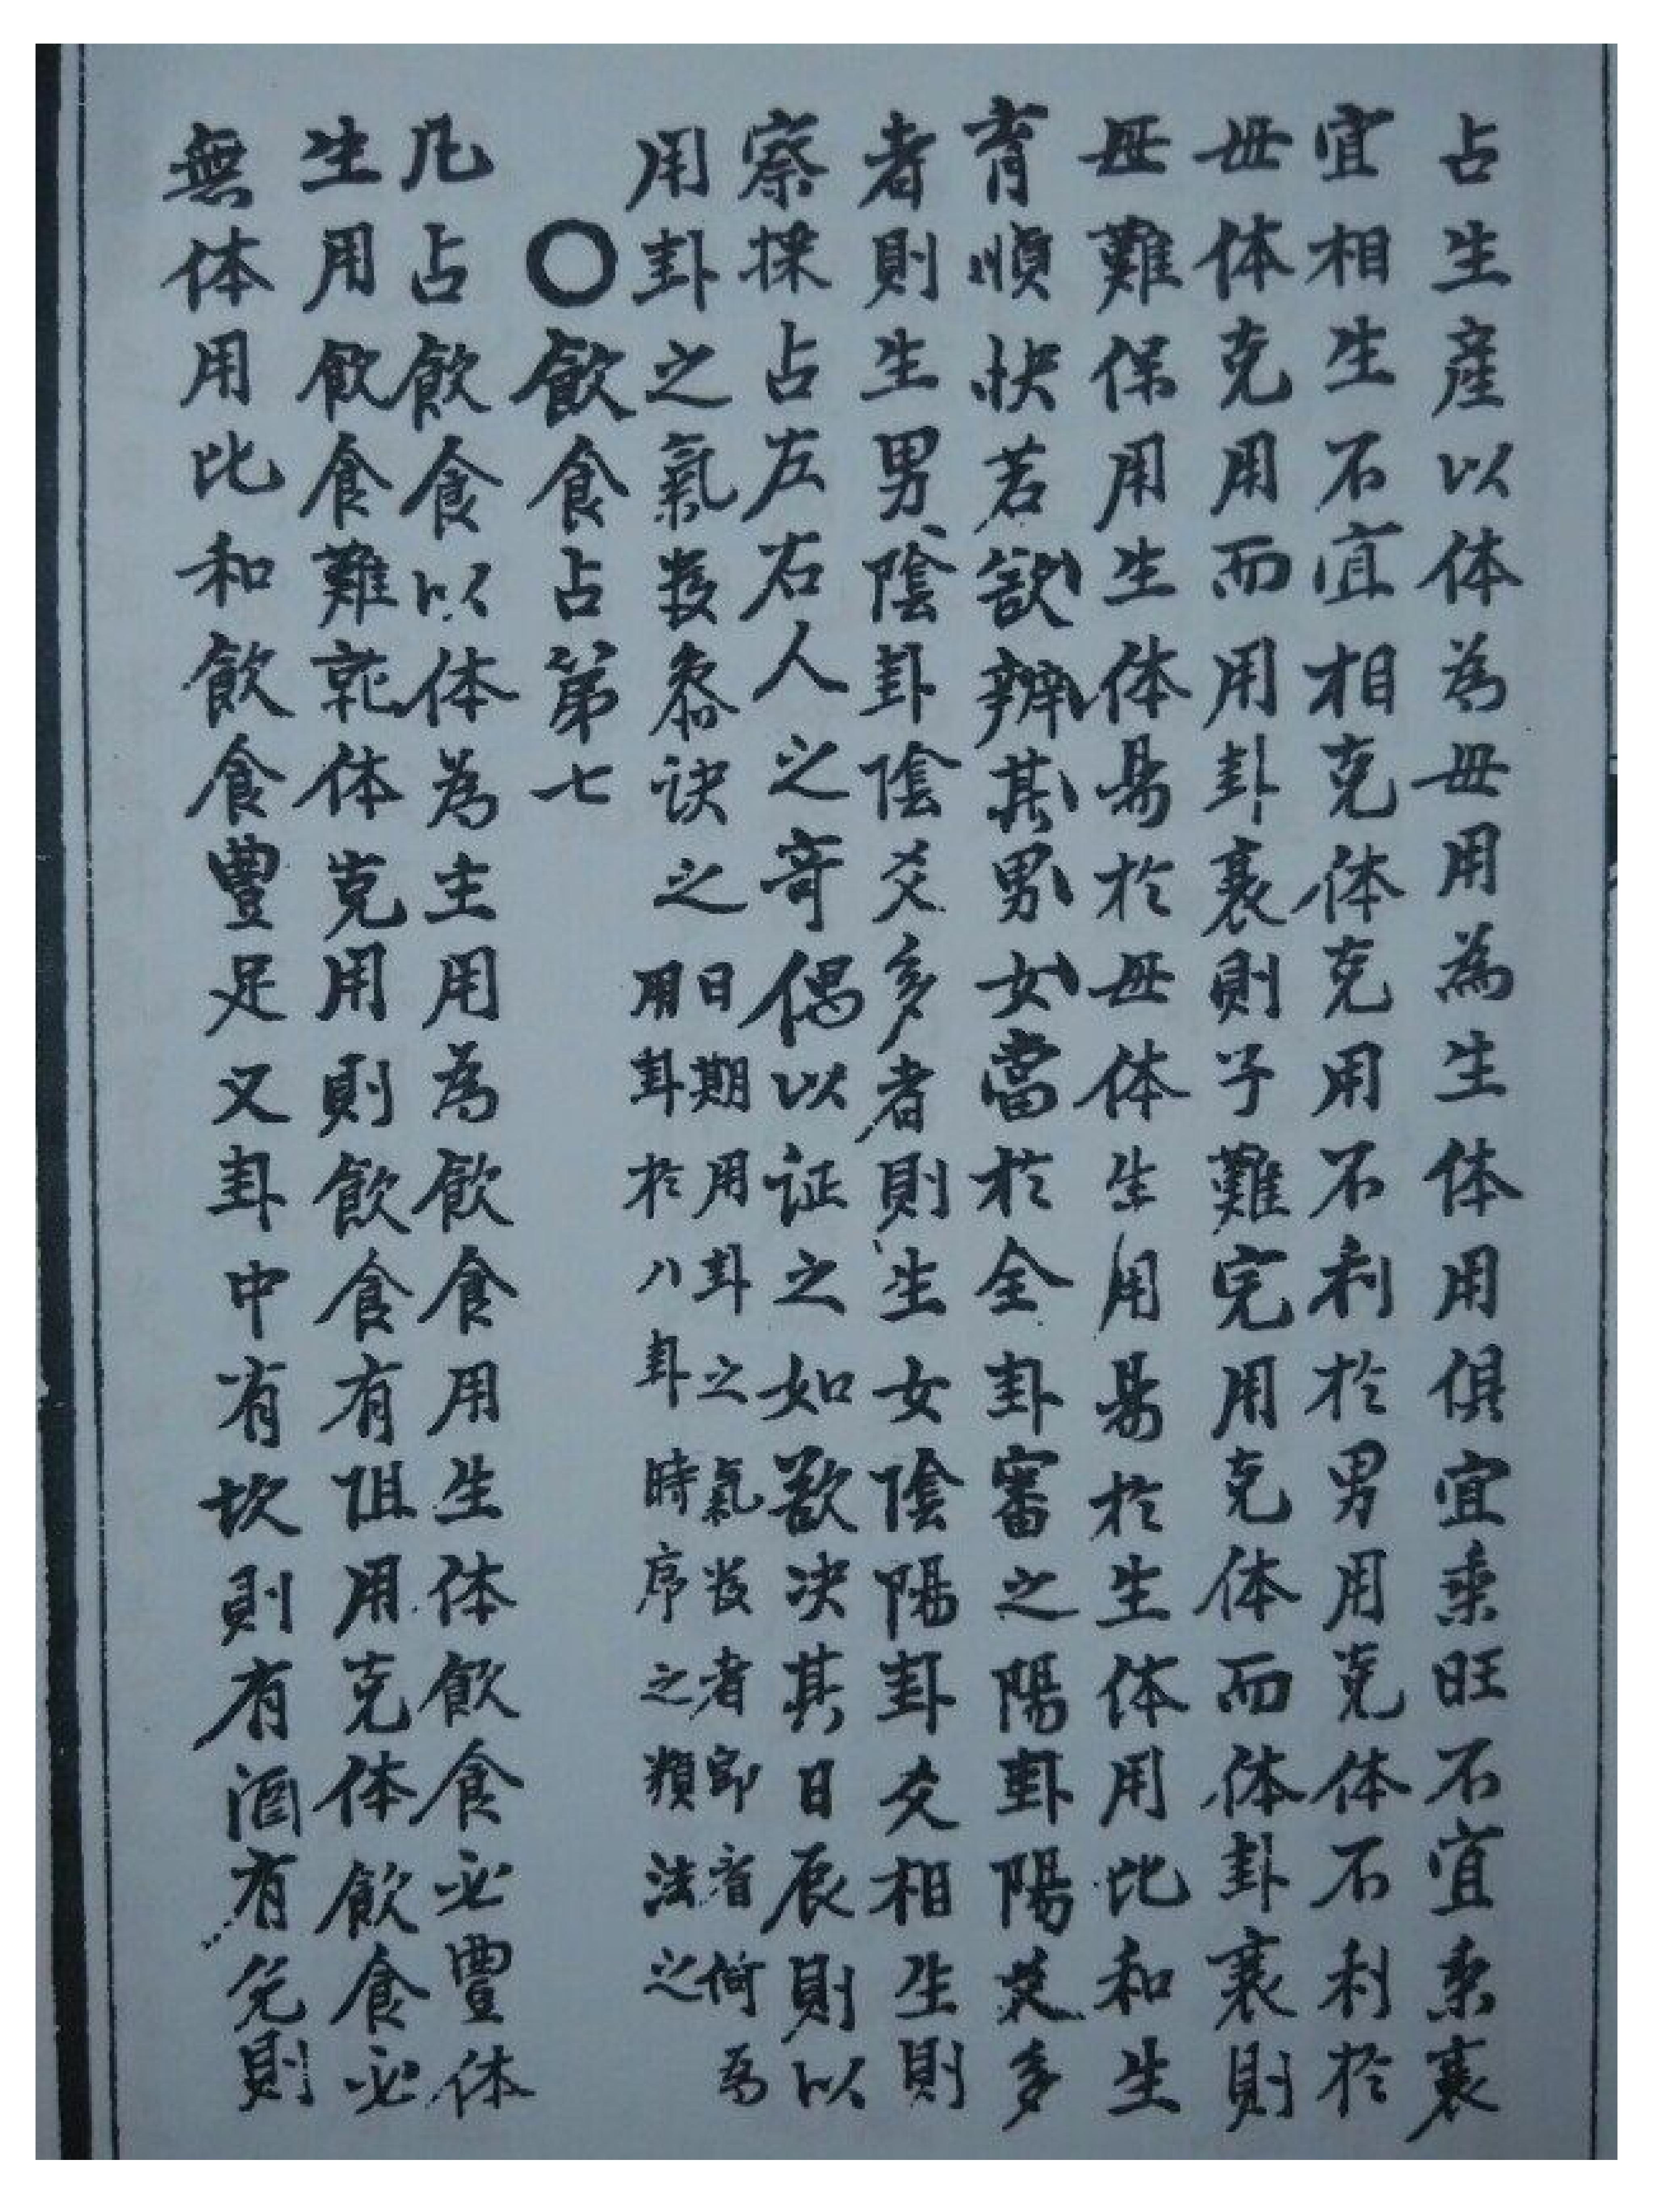 占生産以体為毋用為生体用俱宜乘旺不宜乘衰
宜相生不宜相克体克用不利於男用克体不利於
毋体克用而用卦衰則子難完用克体而体卦衰則
毋難保用生体易於毋体生用易於生体用比和生
育順快若欲辨其男女當於全卦審之陽卦陽爻多
者則生男陰卦陰爻多者則生女陰陽卦爻相生則
察探占左右人之奇偶以证之如欲决其日辰則以
用卦之氣数叅诀之
日期用卦之氣数者即看何為
用卦於八卦時序之類法之
〇飲食占第七
凡占飲食以体為主用為飲食用生体飲食必豐体
生用飲食難就体克用則飲食有阻用克体飲食必
無体用比和飲食豐足又卦中有坎則有酒有兌則